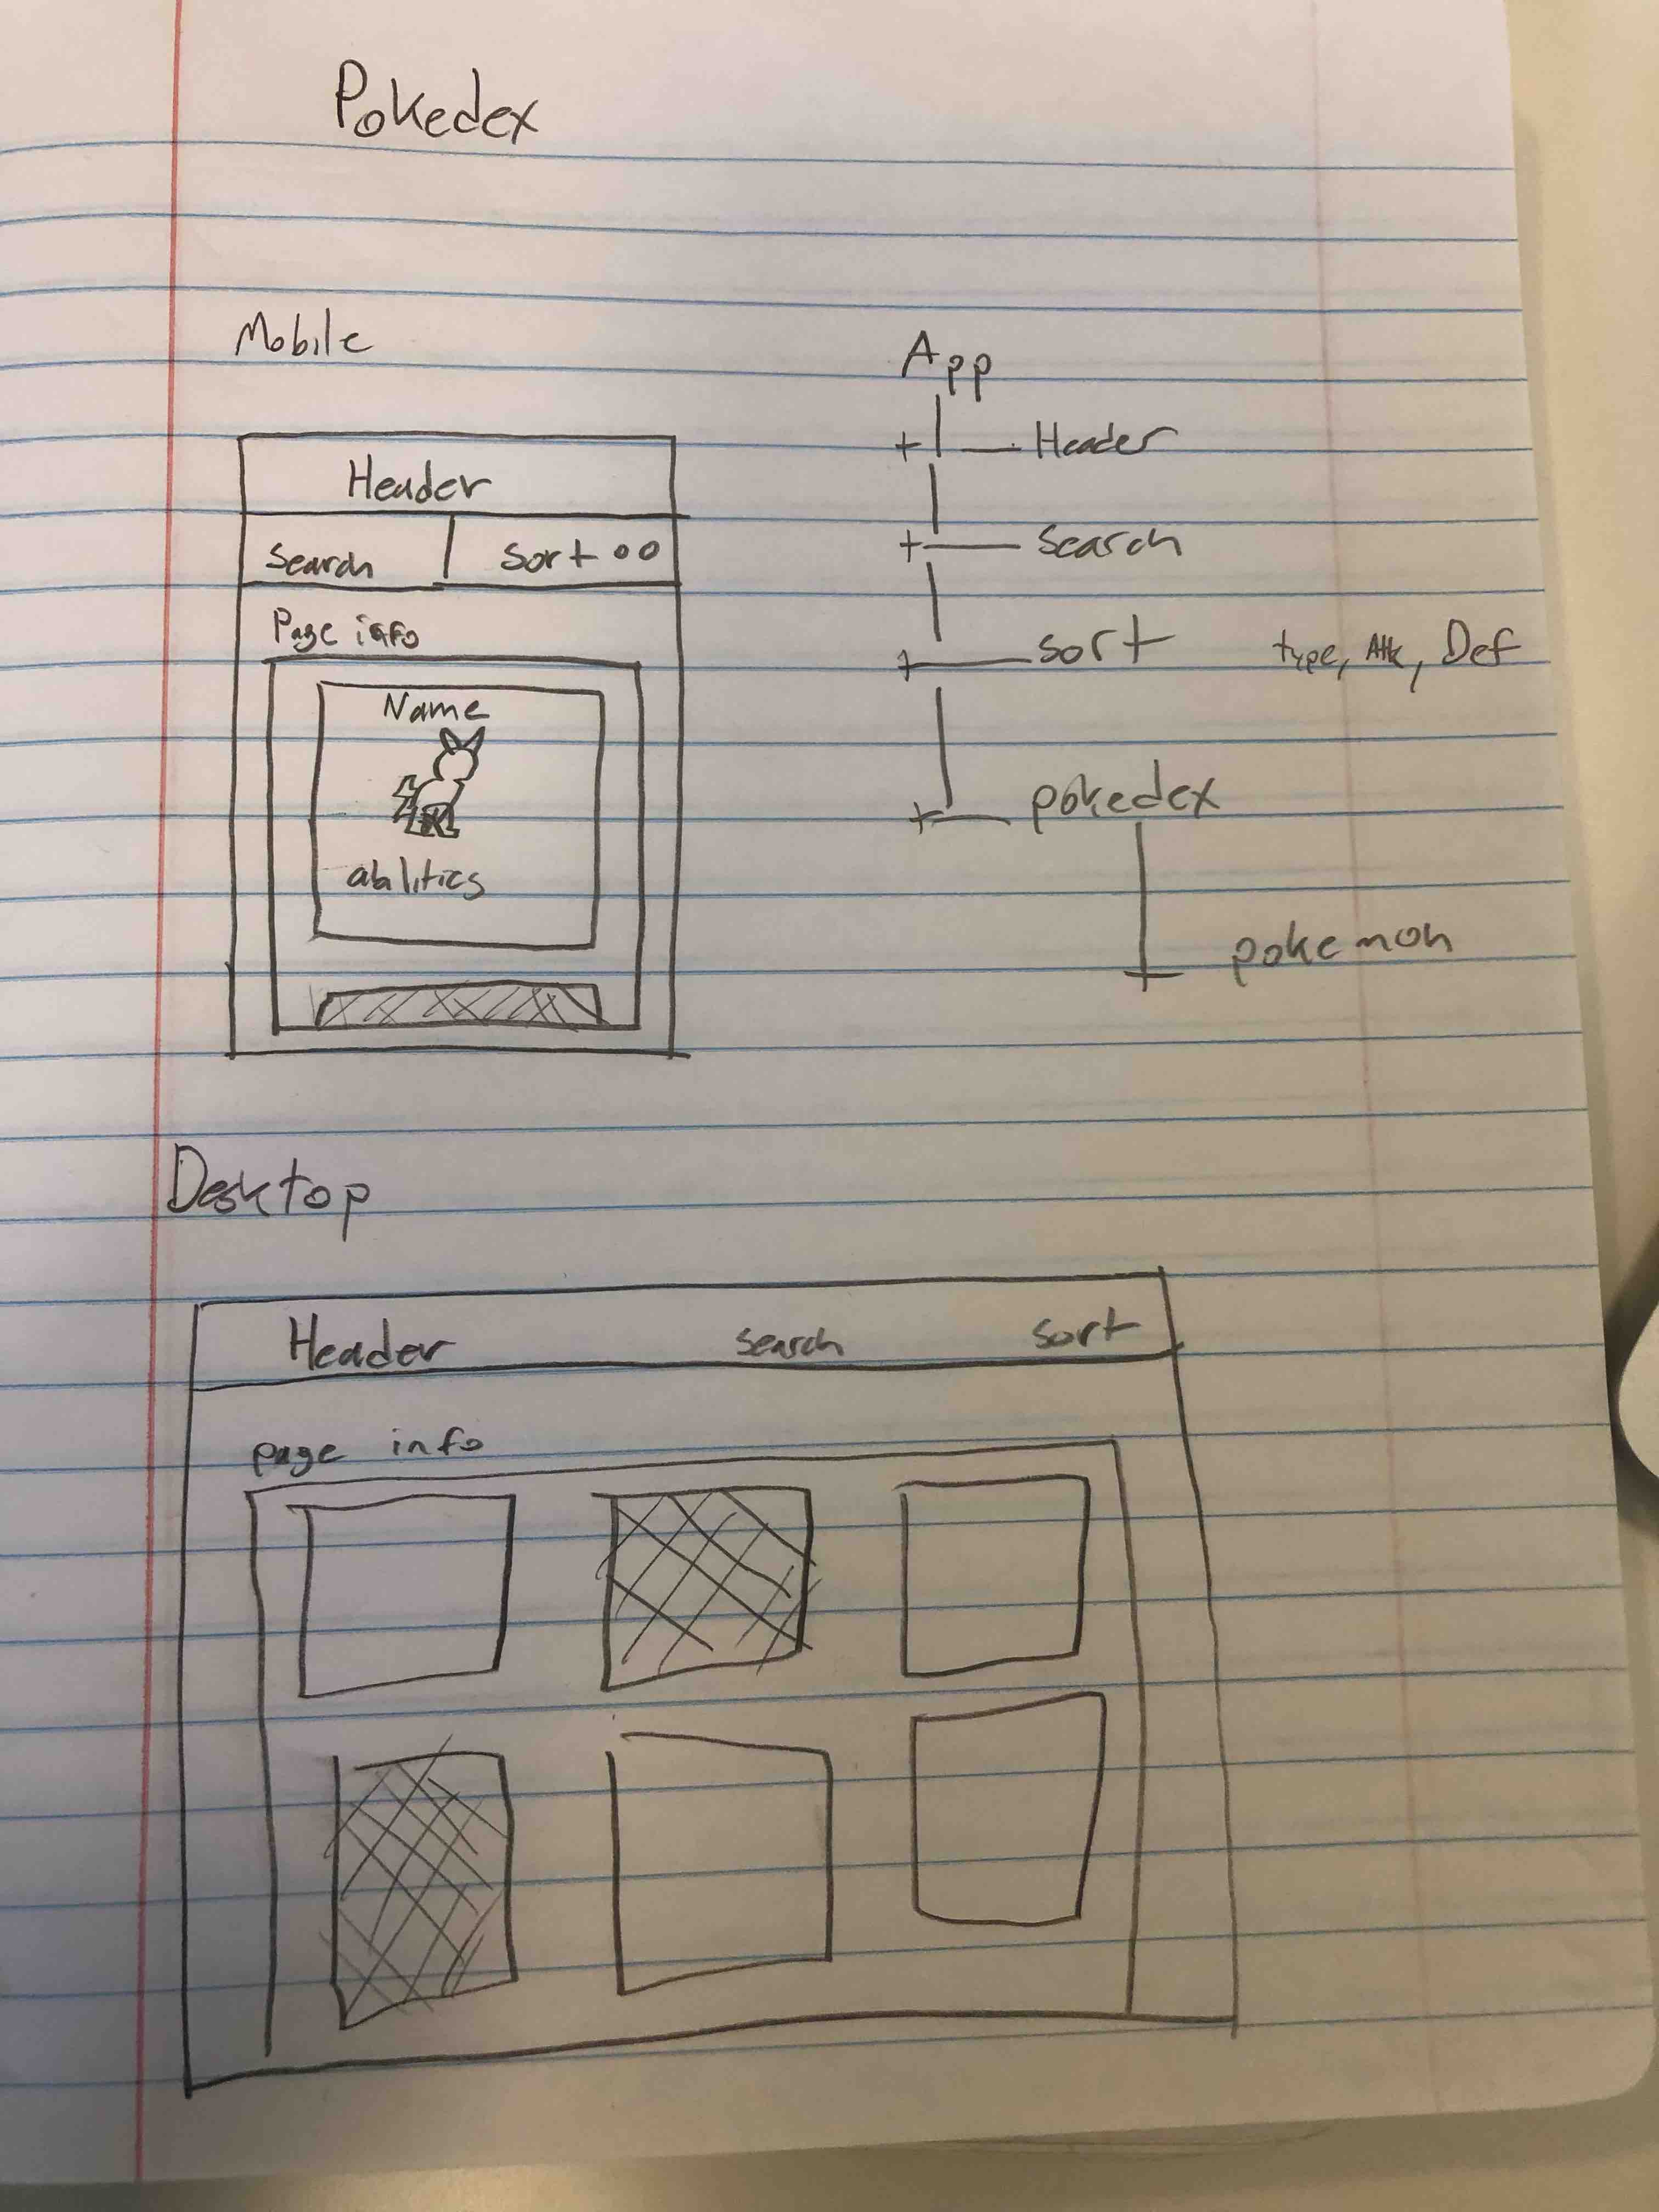 Pokedex
Mobile
Header
Search
Sort
Page info
Name
abilities
App
Header
Search
sort
type, Atk, Def
pokedex
pokemon
Desktop
Header
Search
Sort
page info